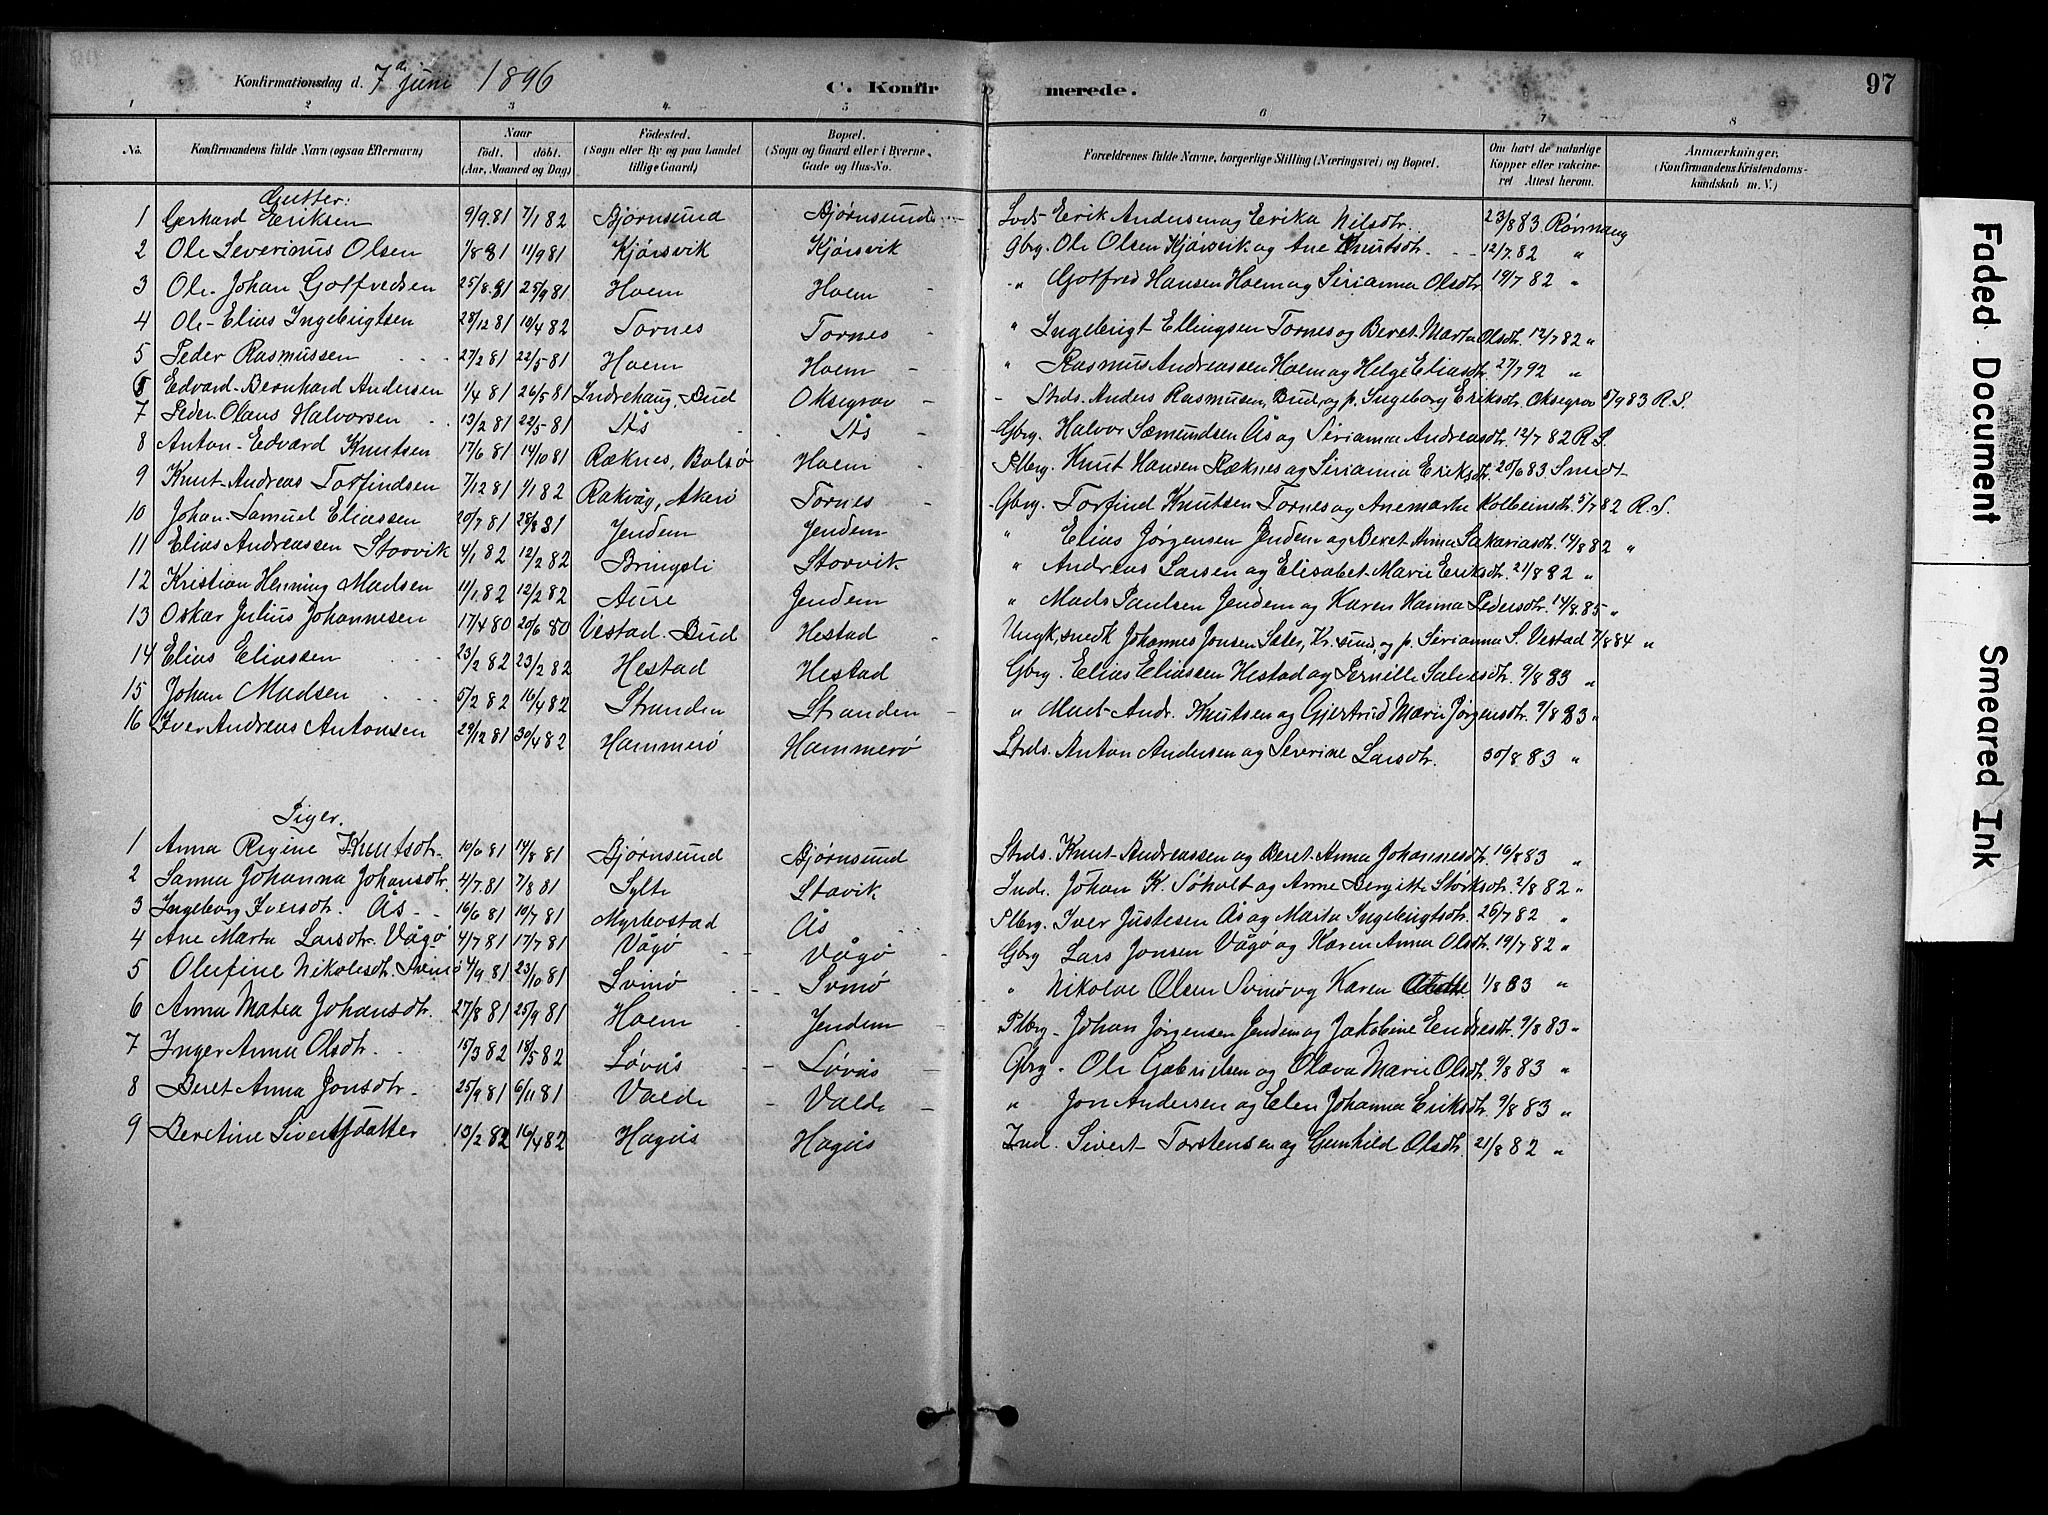 Konfirmationsdag d. 7de juni 1896
C. Konfirmerede.
97
1 2 3 4 5 6 7 8
No. Konfirmandens fulde Navn (ogsaa Efternavn) Naar födt. döbt. (Aar, Maaned og Dag) Födested. (Sogn eller By og paa Landet tillige Gaard) Bopæl. (Sogn og Gaard eller i Byerne, Gade og Hus-No. Forældrenes fulde Navne, borgerlige Stilling (Næringsvei) og Bopæl. Om havt de naturlige Kopper eller vakcineret Attest herom. Anmærkninger. (Konfirmandens Kristendomskundskab m. V.)
Gutter:
1 Gerhard Eriksen 9/9 81 7/1 82 Bjørnsund Bjørnsund Lods Erik Andersen og Erika Nilsdtr. 23/8 83 Rønmang
2 Ole Severinus Olsen 1/8 81 11/9 81 Kjørsvik Kjørsvik Gbrg. Ole Olsen Kjørsvik og Ane Knutsdtr. 12/7 82 "
3 Ole Johan Golfredsen 25/8 81 25/9 81 Hoem Hoem " Gotfred Hansen Hoem og Serianna Olsdtr 19/7 82 "
4 Ole Elias Ingebrigtsen 28/12 81 10/4 82 Tornes Tornes " Ingebrigt Ellingsen Tornes og Beret Marta Olsdtr. 12/7 82 "
5 Peder Rasmussen 27/2 81 22/5 81 Hoem Hoem " Rasmus Andreassen Hoem og Helge Eliasdtr. 27/7 92 "
6 Edvard Bernhard Andersen 1/4 81 26/5 81 Indrehaug, Bud Oksegrov Strds. Anders Rasmusen, Bud, og p. Ingeborg Eriksdtr. Oksegrov 5/9 83 R.S.
7 Peder Olaus Halvorsen 13/2 81 22/5 81 Ås Ås Gbrg. Halvor Sæmundsen Ås og Serianna Andreasdtr. 12/7 82 R.S.
8 Anton Edvard Knutsen 17/6 81 14/10 81 Ræknes, Bolsø Hoem Plbrg. Knut Hansen Ræknes og Serianna Eriksdtr. 20/6 83 Smedt
9 Knut Andreas Torfindsen 7/12 81 1/1 82 Rakvåg, Akerø Tornes Gbrg. Torfind Knutsen Tornes og Anemarthe Kolbeinsdtr. 5/7 82 R.S.
10 Johan Samuel Eliassen 20/7 81 28/8 81 Jendem Jendem " Elias Jørgensen Jendem og Beret Anna Sakariasdtr. 14/8 82 "
11 Elias Andreassen Storvik 4/1 82 12/2 82 Bringsli Storvik " Andreas Larsen og Elisabet Marie Eriksdtr. 21/8 82 "
12 Kristian Henning Madsen 11/1 82 12/2 82 Aure Jendem " Mads Paulsen Jendem og Karen Hanna Pedersdtr. 14/8 85 "
13 Oskar Julius Johannesen 17/4 80 20/6 80 Vestad. Bud Hestad Ungk. snedk Johannes Jonsen Sater, Kr. sund, og p. Serianna S. Vestad 7/8 84 "
14 Elias Eliassen 23/2 82 23/2 82 Hestad Hestad Gbrg. Elias Eliassen Hestad og Pernille Salvesdtr. 9/8 83 "
15 Johan Madsen 5/2 82 16/4 82 Stranden Stranden " Mads Andr. Knutsen og Gjertrud Marie Jørgensdtr. 9/8 83 "
16 Iver Andreas Antonsen 29/12 81 30/4 82 Hammerø Hammerø Strds. Anton Andersen og Severine Larsdtr. 30/8 83 "
Piger.
1 Anna Regine Knutsdtr. 10/6 81 14/8 81 Bjørnsund Bjørnsund Strds. Knut Andreassen og Beret Anna Johannesdtr. 16/8 83 "
2 Sanna Johanna Johansdtr. 4/7 81 7/8 81 Sylte Stavik Ind. Johan K. Søholt og Anne Bergitte Størksdtr. 2/8 82 "
3 Ingeborg Iversdtr. Ås 16/6 81 10/7 81 Myrbostad Ås Plbrg. Iver Justesen Ås og Marta Ingebrigtsdtr. 26/7 82 "
4 Ane Marta Larsdtr. Vågø 4/7 81 17/7 81 Vågø Vågø Gbrg Lars Jonsen Vågø og Karen Anna Olsdtr. 19/7 82 "
5 Olufine Nikolisdtr. Svinø 4/9 81 23/10 81 Svinø Svinø " Nikolai Olsen Svinø og Karen 1/8 83 "
6 Anna Matea Johansdtr. 27/8 81 25/9 81 Hoem Jendem Plbrg. Johan Jørgensen Jendem og Jakobine Endresdtr. 9/8 83 "
7 Inger Anna Olsdtr. 15/3 82 18/5 82 Løvås Løvås Gbrg. Ole Gabrielsen og Olava Marie Olsdtr. 9/8 83 "
8 Beret Anna Jonsdtr. 25/9 81 6/11 81 Valde Valde " Jon Andersen og Elen Johanna Eriksdtr. 9/8 83 "
9 Beretine Sivertsdatter 13/2 82 16/4 82 Hagås Hagås Ind. Sivert Torstensen og Gunhild Olsdtr. 21/8 82 "
Faded Document
Smeared Ink